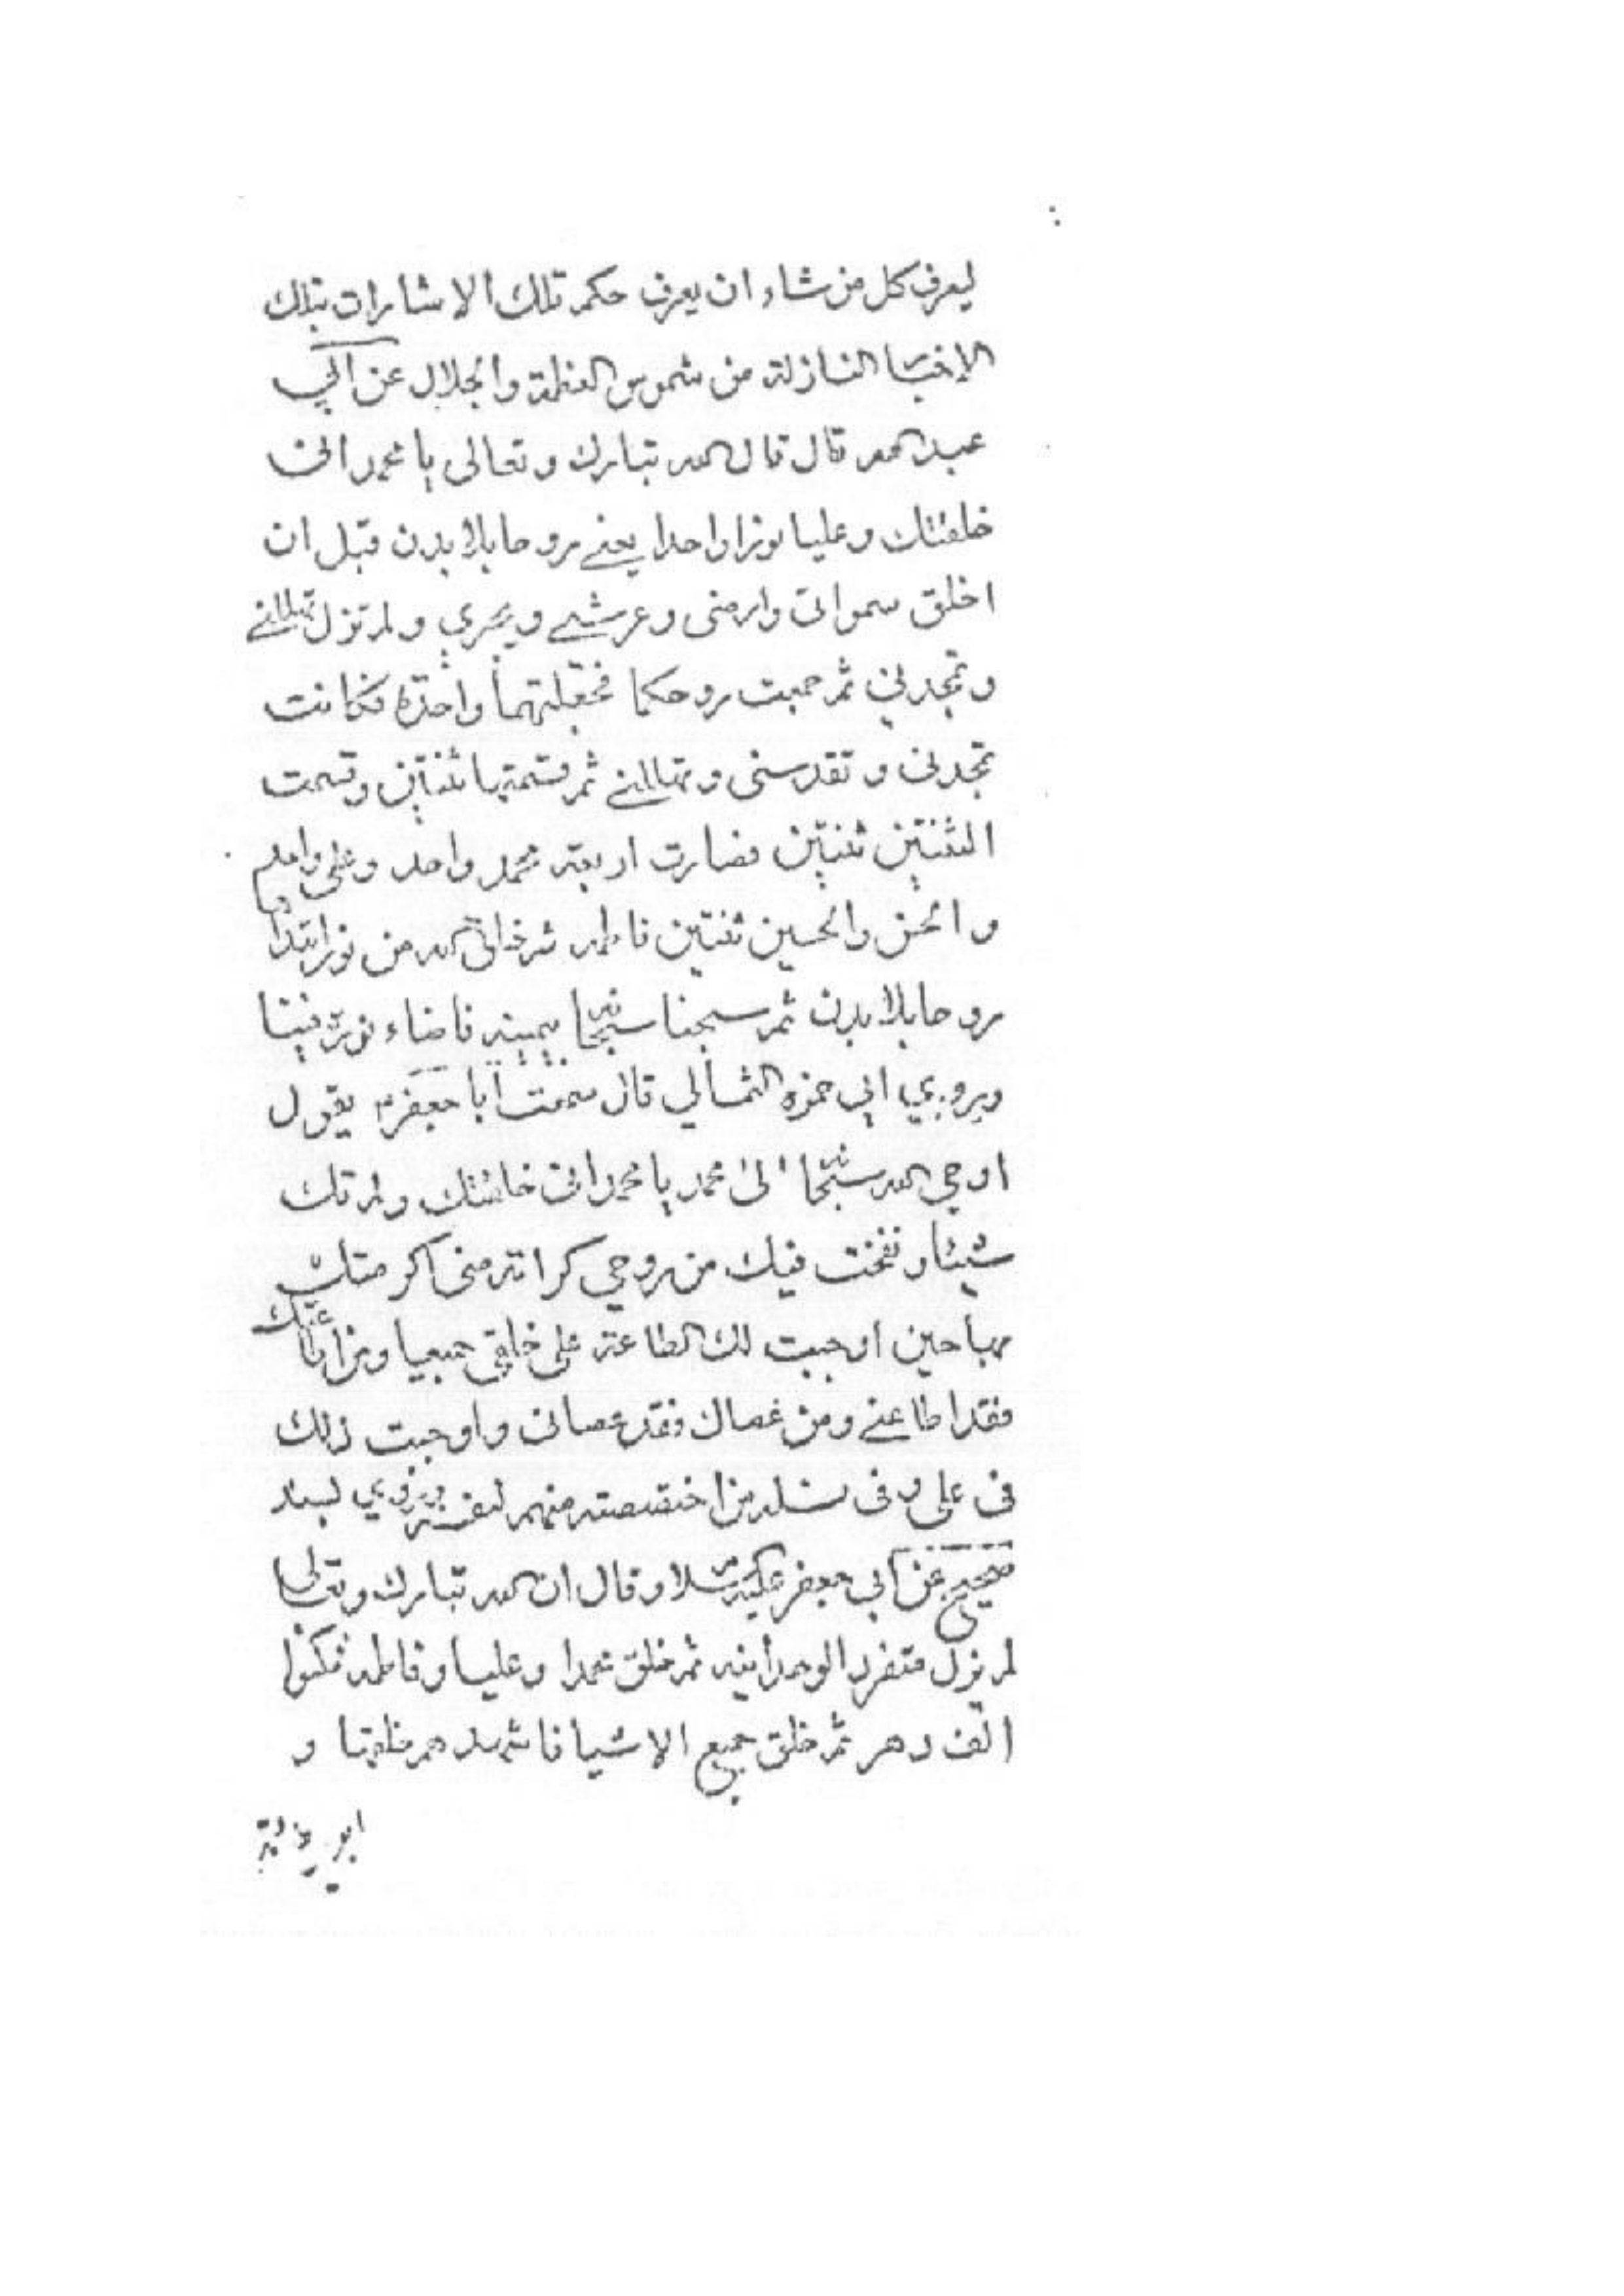 ليعرف كل من شاء ان يعرف حكم تلك الاشارات بتلك
الاخبار النازلة من شموس العظمة والجلال عن ابي
عبد الله قال قال الله تبارك وتعالى يا محمد اني
خلقتك وعليا نورا واحدا يعني روحا بلا بدن قبل ان
اخلق سمواتي وارضي وعرشي وبحري ولم تزل تهللني
وتمجدني ثم جمعت روحكما فجعلتهما واحدة فكانت
تمجدني و تقدسني و تهللني ثم قسمتها ثنتين وقسمت
الثنتين ثنتين فصارت اربعة محمد واحد وعلي واحد
و الحسن والحسين ثنتين فاطمه ثم خلق الله من نور ابتداها
روحا بلا بدن ثم مسحنا بيمينه فاضاء نوره فينا
ويروي ابي حمزه الثمالي قال سمعت ابا جعفر يقول
اوحي الله الى محمد يا محمد اني خلقتك ولم تك
شيئا و نفخت فيك من روحي كرامة مني اكرمتك
بها حين اوجبت لك الطاعة على خلقي جميعا فمن اطاعك
فقد اطاعني ومن عصاك فقد عصاني واوجبت ذلك
في علي وفي نسله من اختصصته منهم لنفسي ويروي بسند
صحيح عن ابي جعفر عليه السلام قال ان الله تبارك وتعالى
لم يزل متفردا بوحدانيته ثم خلق محمدا وعليا و فاطمه فمكثوا
الف دهر ثم خلق جميع الاشيا فاشهدهم خلقها و